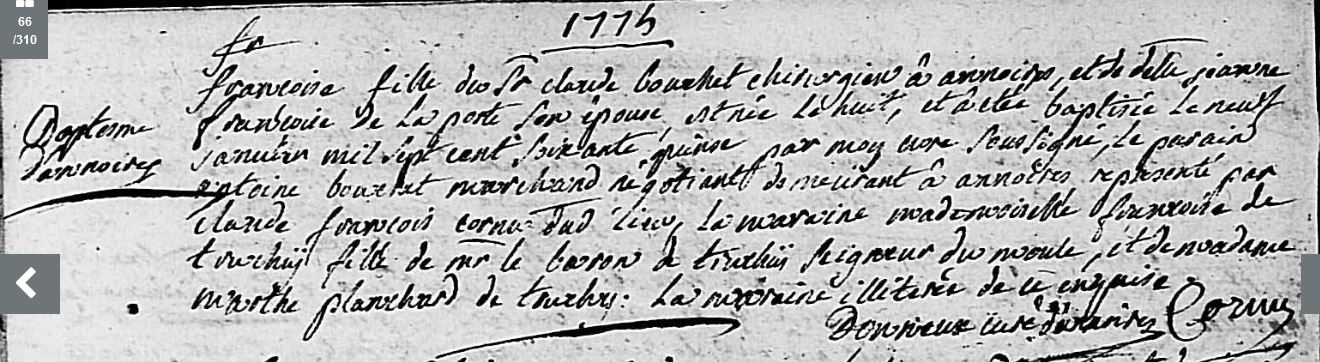 66
/310
1775
fr
francoise fille du Sr claude bouchet chirurgien â annoires, et de delle jeanne
francoise de la porte son épouse, est née le huit, et â etée baptisée le neuf
janvier mil sept cent soixante quinse par moy cure soussigné, le parain
Baptesme
d'annoires
antoine bouchet marchand négotiant demeurant â annoires représenté par
claude françois cornu dud lieu, la maraine mademoiselle francoise de
truchis fille de mr le baron de truchis seigneur du moule, et de madame
marthe planchard de truchis. la maraine illiterée de ce enquise
curé d'annoires Cornu